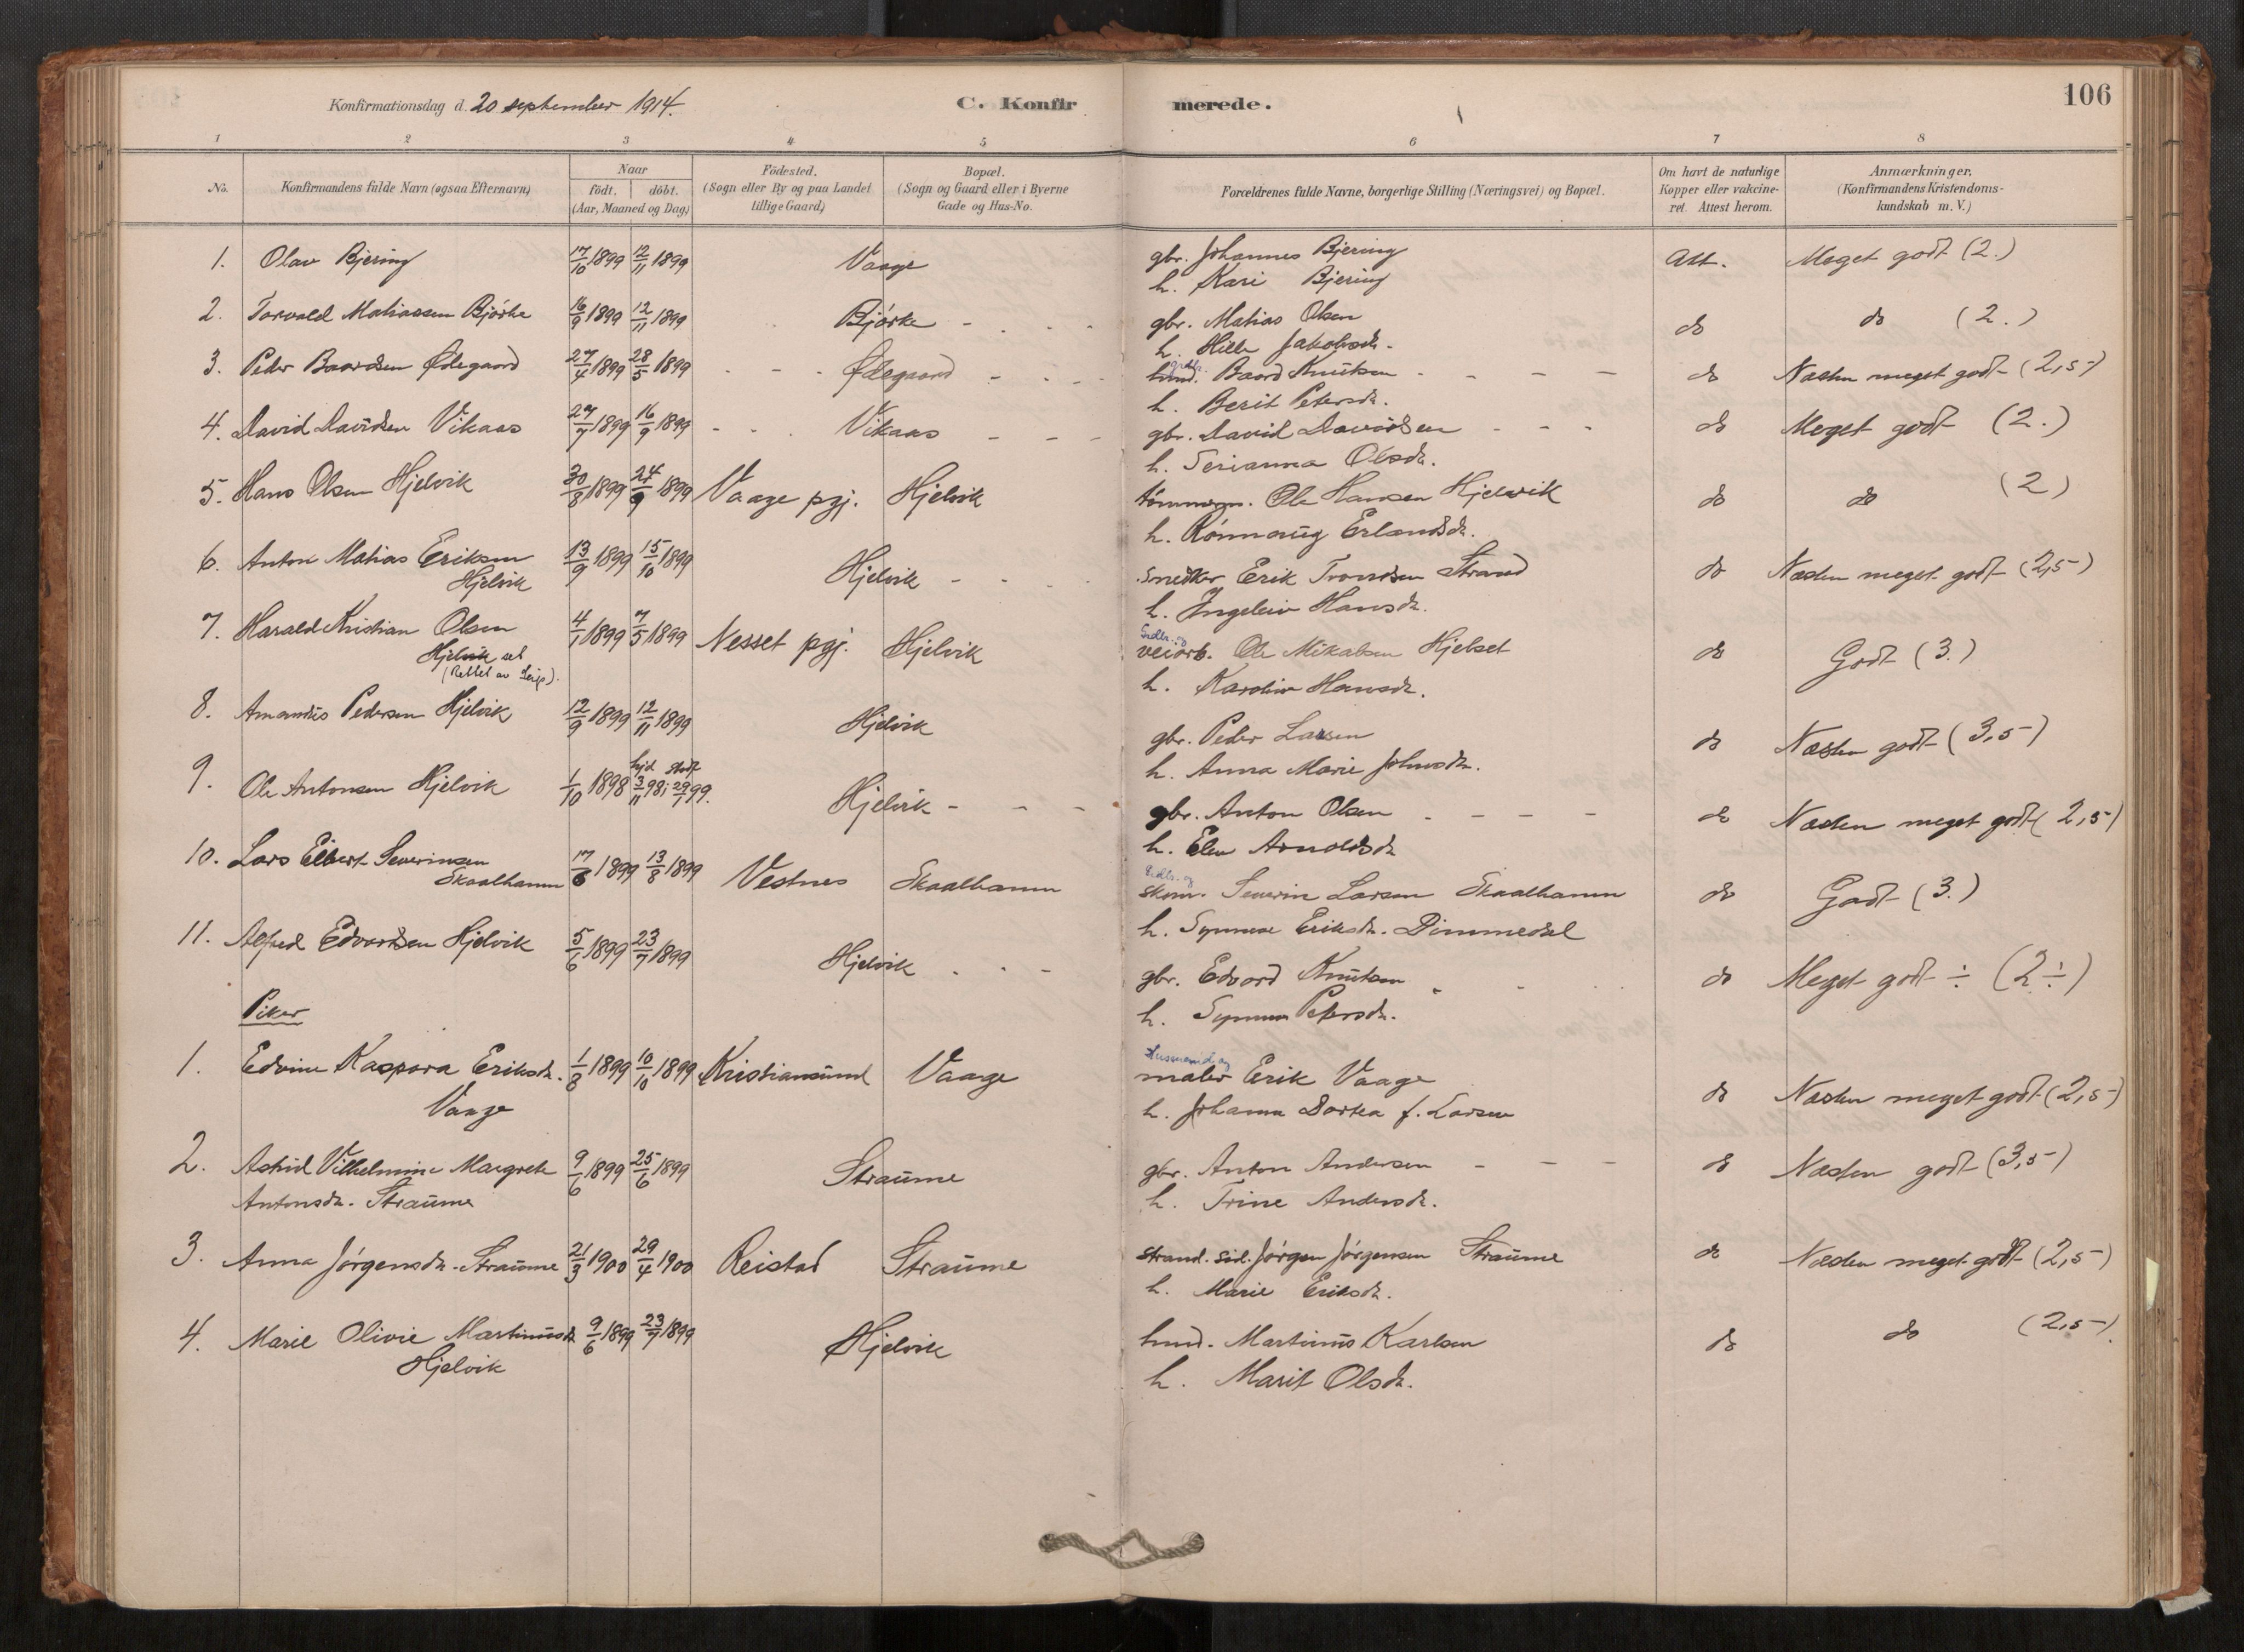 Konfirmationsdag d. 20 september 1914.
C. Konfirmerede.
106
1 2 3 4 5 6 7 8
No.
Konfirmandens fulde Navn (ogsaa Efternavn)
Naar
födt. döbt.
(Aar, Maaned og Dag)
Födested.
(Sogn eller By og paa Landet
tillige Gaard)
Bopæl.
(Sogn og Gaard eller i Byerne
Gade og Hus-No.
Forældrenes fulde Navne, borgerlige Stilling (Næringsvei) og Bopæl.
Om havt de naturlige
Kopper eller vakcine-
ret. Attest herom.
Anmærkninger.
(Konfirmandens Kristendoms-
kundskab m. V.)
1. Olav Bjering 17/10 1899 12/11 1899 Vaage gbr. Johannes Bjering Att. Meget godt (2.)
h. Kari Bjering
2. Torvald Matiassen Bjórke 16/9 1899 12/11 1899 Bjórke gbr. Matias Olsen do do (2.)
h. Jakobsdr.
3. Peder Baardsen Ødegaard 27/4 1899 28/5 1899 Ødegaard Baard Knutsen do Næsten meget godt (2,5)
h. Berit Petersdr.
4. David Davidsen Vikaas 27/7 1899 16/9 1899 Vikaas gbr. David Davidsen do Meget godt (2.)
h. Serianna Olsdr.
5. Hans Olsen Hjelvik 30/8 1899 24/9 1899 Vaage pgj. Hjelvik tómmerm. Ole Hansen Hjelvik do do (2)
h. Rónnaug Erlandsdr.
6. Anton Matias Eriksen 13/9 1899 15/10 1899 Hjelvik Snedker Erik Trondsen Strand do Næsten meget godt (2,5)
Hjelvik
h. Ingeleiv Hansdr.
7. Harald Kristian Olsen 4/1 1899 7/5 1899 Nesset pgj. Hjelvik veiarb. Ole Mikalsen Hjelset do Godt (3.)
Hjelvik set
(Rettet av )
h. Karoline Hansdr.
8. Amandus Pedersen Hjelvik 12/9 1899 12/11 1899 Hjelvik gbr. Peder Larsen do Næsten godt (3,5)
h. Anna Marie Johnsdr.
9. Ole Antonsen Hjelvik 1/10 1898 hjd 3/11 98; stadf 29/1 99. Hjelvik gbr. Anton Olsen do Næsten meget godt (2,5)
h. Elen Arnoldsdr
10. Lars Elbert Severinsen 17/6 1899 13/8 1899 Vestnes Skaalhamn skom. Severin Larsen Skaalhamn do Godt (3.)
Skaalhamn
h. Synneve Eriksdr. Dimmedal
11. Alfred Edvardsen Hjelvik 5/6 1899 23/7 1899 Hjelvik gbr. Edvard Knutsen do Meget godt ÷ (2÷)
h. Synneve Petersdr.
Piker
1. Edvine Kaspara Eriksdr. 1/8 1899 10/10 1899 Kristiansund Vaage Husmand og
maler Erik Vaage do Næsten meget godt (2,5)
Vaage
h. Johanna Dortea f. Larsen
2. Astrid Vilhelmine Margrete 9/6 1899 25/6 1899 Straume gbr. Anton Andersen do Næsten godt (3,5)
Antonsdr. Straume
h. Trine Andersdr.
3. Anna Jórgensdr. Straume 21/3 1900 29/4 1900 Reistad Straume strand. sid. Jórgen Jórgensen Straume do Næsten meget godt (2,5)
h. Marie Eriksdr.
4. Marie Olivie Martinusdr 9/6 1899 23/7 1899 Hjelvik husd. Martinus Karlsen do do (2,5)
Hjelvik
h. Marit Olsdr.